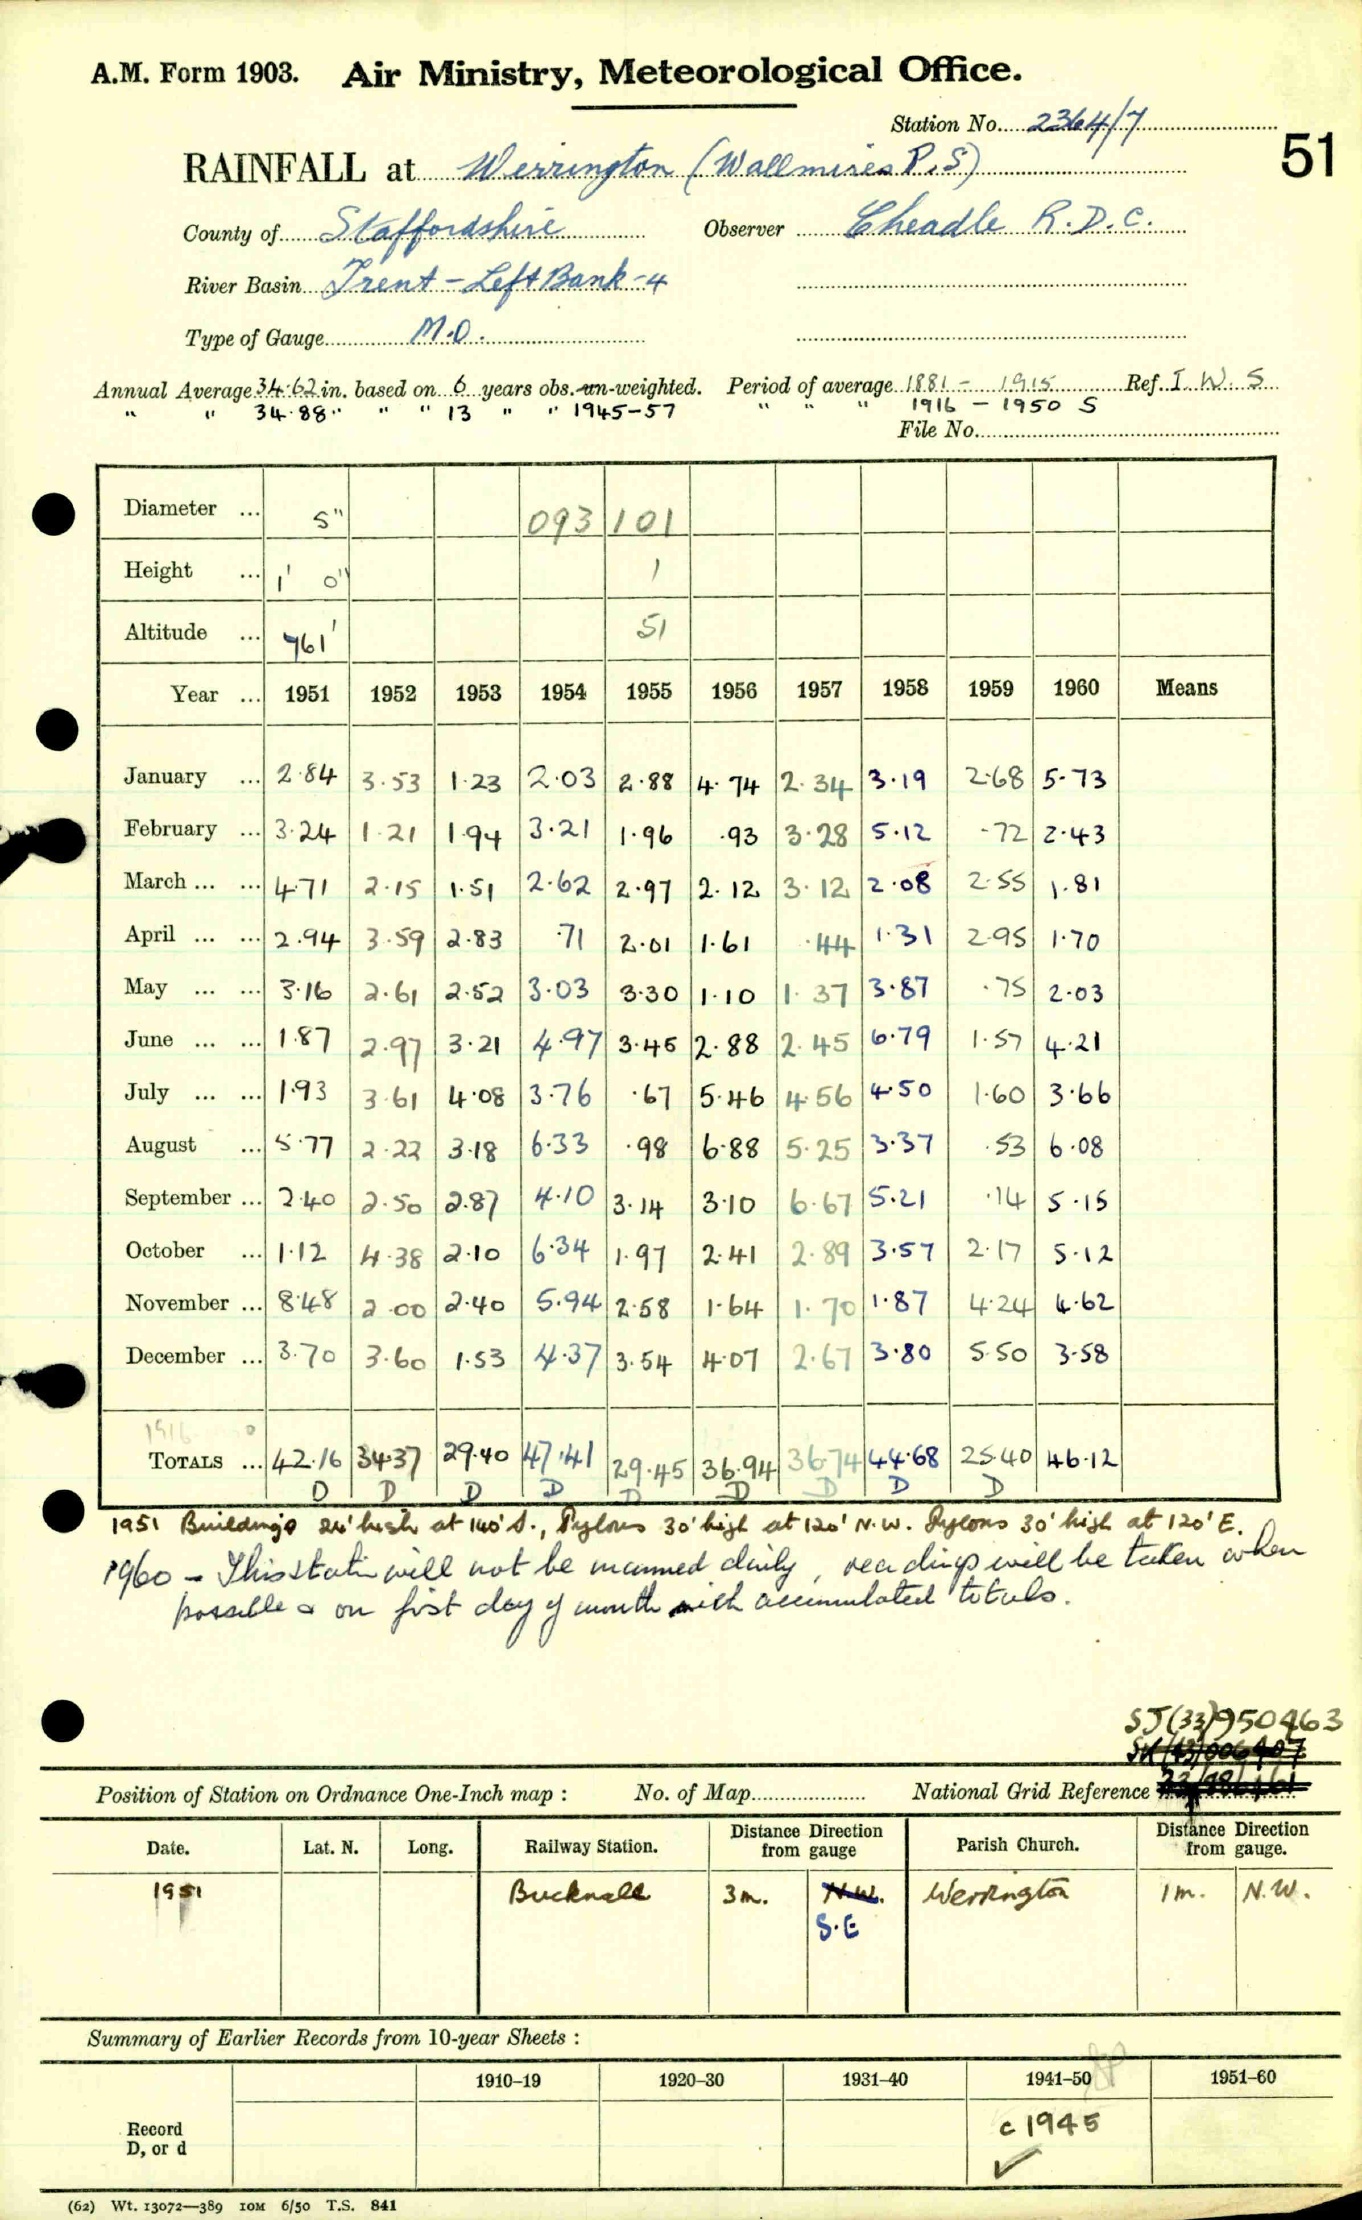 A.M. Form 1903. Air Ministry, Meteorological Office.
Station No. 2364/7
51
RAINFALL at Werrington (Wallmires P.S)
County of Staffordshire Observer Cheadle R.D.C.
River Basin Trent - Left Bank - 4
Type of Gauge M.O.
Annual Average 34.62 in. based on 6 years obs. un-weighted. Period of average 1881 - 1915 Ref. I W. S
" " 34.88 " " " 13 " " 1945-57 " " " 1916 - 1950 S
File No.
Diameter ... 5" 093 101
Height ... 1' 0" 1
Altitude ... 761' 51
Year ... 1951 1952 1953 1954 1955 1956 1957 1958 1959 1960 Means
January ... 2.84 3.53 1.23 2.03 2.88 4.74 2.34 3.19 2.68 5.73
February ... 3.24 1.21 1.94 3.21 1.96 .93 3.28 5.12 .72 2.43
March ... ... 4.71 2.15 1.51 2.62 2.97 2.12 3.12 2.08 2.55 1.81
April ... ... 2.94 3.59 2.83 .71 2.01 1.61 .44 1.31 2.95 1.70
May ... ... 3.16 2.61 2.52 3.03 3.30 1.10 1.37 3.87 .75 2.03
June ... ... 1.87 2.97 3.21 4.97 3.45 2.88 2.45 6.79 1.57 4.21
July ... ... 1.93 3.61 4.08 3.76 .67 5.46 4.56 4.50 1.60 3.66
August ... 5.77 2.22 3.18 6.33 .98 6.88 5.25 3.37 .53 6.08
September ... 2.40 2.50 2.87 4.10 3.14 3.10 6.67 5.21 .14 5.15
October ... 1.12 4.38 2.10 6.34 1.97 2.41 2.89 3.57 2.17 5.12
November ... 8.48 2.00 2.40 5.94 2.58 1.64 1.70 1.87 4.24 4.62
December ... 3.70 3.60 1.53 4.37 3.54 4.07 2.67 3.80 5.50 3.58
1916
TOTALS ... 42.16 34.37 29.40 47.41 29.45 36.94 36.74 44.68 25.40 46.12
D D D D D D D D D
1951 Buildings 24' high at 140' S., Pylons 30' high at 120' N.W. Pylons 30' high at 120' E.
1960 - This station will not be manned daily, readings will be taken when
possible & on first day of month with accumulated totals.
SJ(33)950463
SK(43)006407
Position of Station on Ordnance One-Inch map : No. of Map National Grid Reference
Date. Lat. N. Long. Railway Station. Distance from Direction gauge Parish Church. Distance from Direction gauge.
1951 Bucknall 3m. N.W. Werrington 1m. N.W.
S.E
Summary of Earlier Records from 10-year Sheets :
1910–19 1920–30 1931–40 1941–50 1951–60
Record
D, or d
c 1945
(62) Wt. 13072—389 10M 6/50 T.S. 841